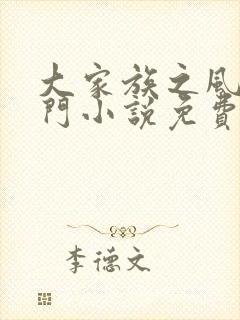 大家族之風
門小説免費
李德文